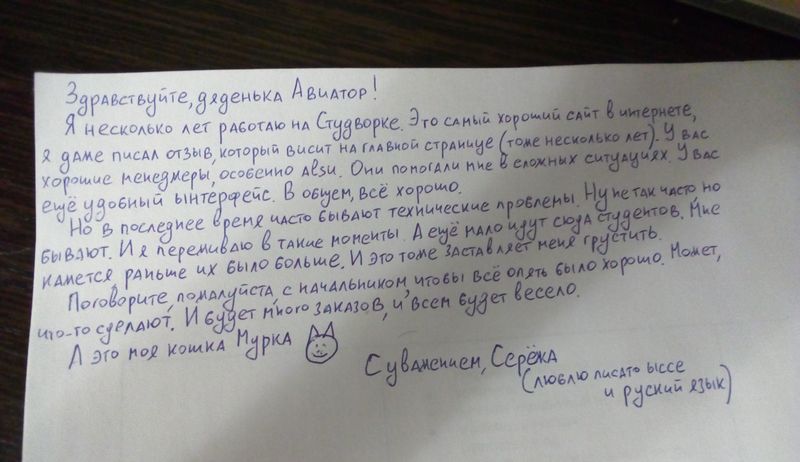 Здравствуйте, дяденька Авиатор!
Я несколько лет работаю на Студворке. Это самый хороший сайт в интернете,
я даже писал отзыв, который висит на главной странице (тоже несколько лет). У вас
хорошие менеджеры, особенно Alsu. Они помогали мне в сложных ситуациях. У вас
ещё удобный ынтерфейс. В общем, всё хорошо.
Но в последнее время часто бывают технические проблемы. Ну не так часто но
бывают. И я переживаю в такие моменты. А ещё мало идут сюда студентов. Мне
кажется раньше их было больше. И это тоже заставляет меня грустить.
Поговорите, пожалуйста, с начальником, чтобы всё опять было хорошо. Может,
что-то сделают. И будет много заказов, и всем будет весело.
А это моя кошка Мурка
С уважением, Серёжа
(люблю писать ыссе
и руский язык)